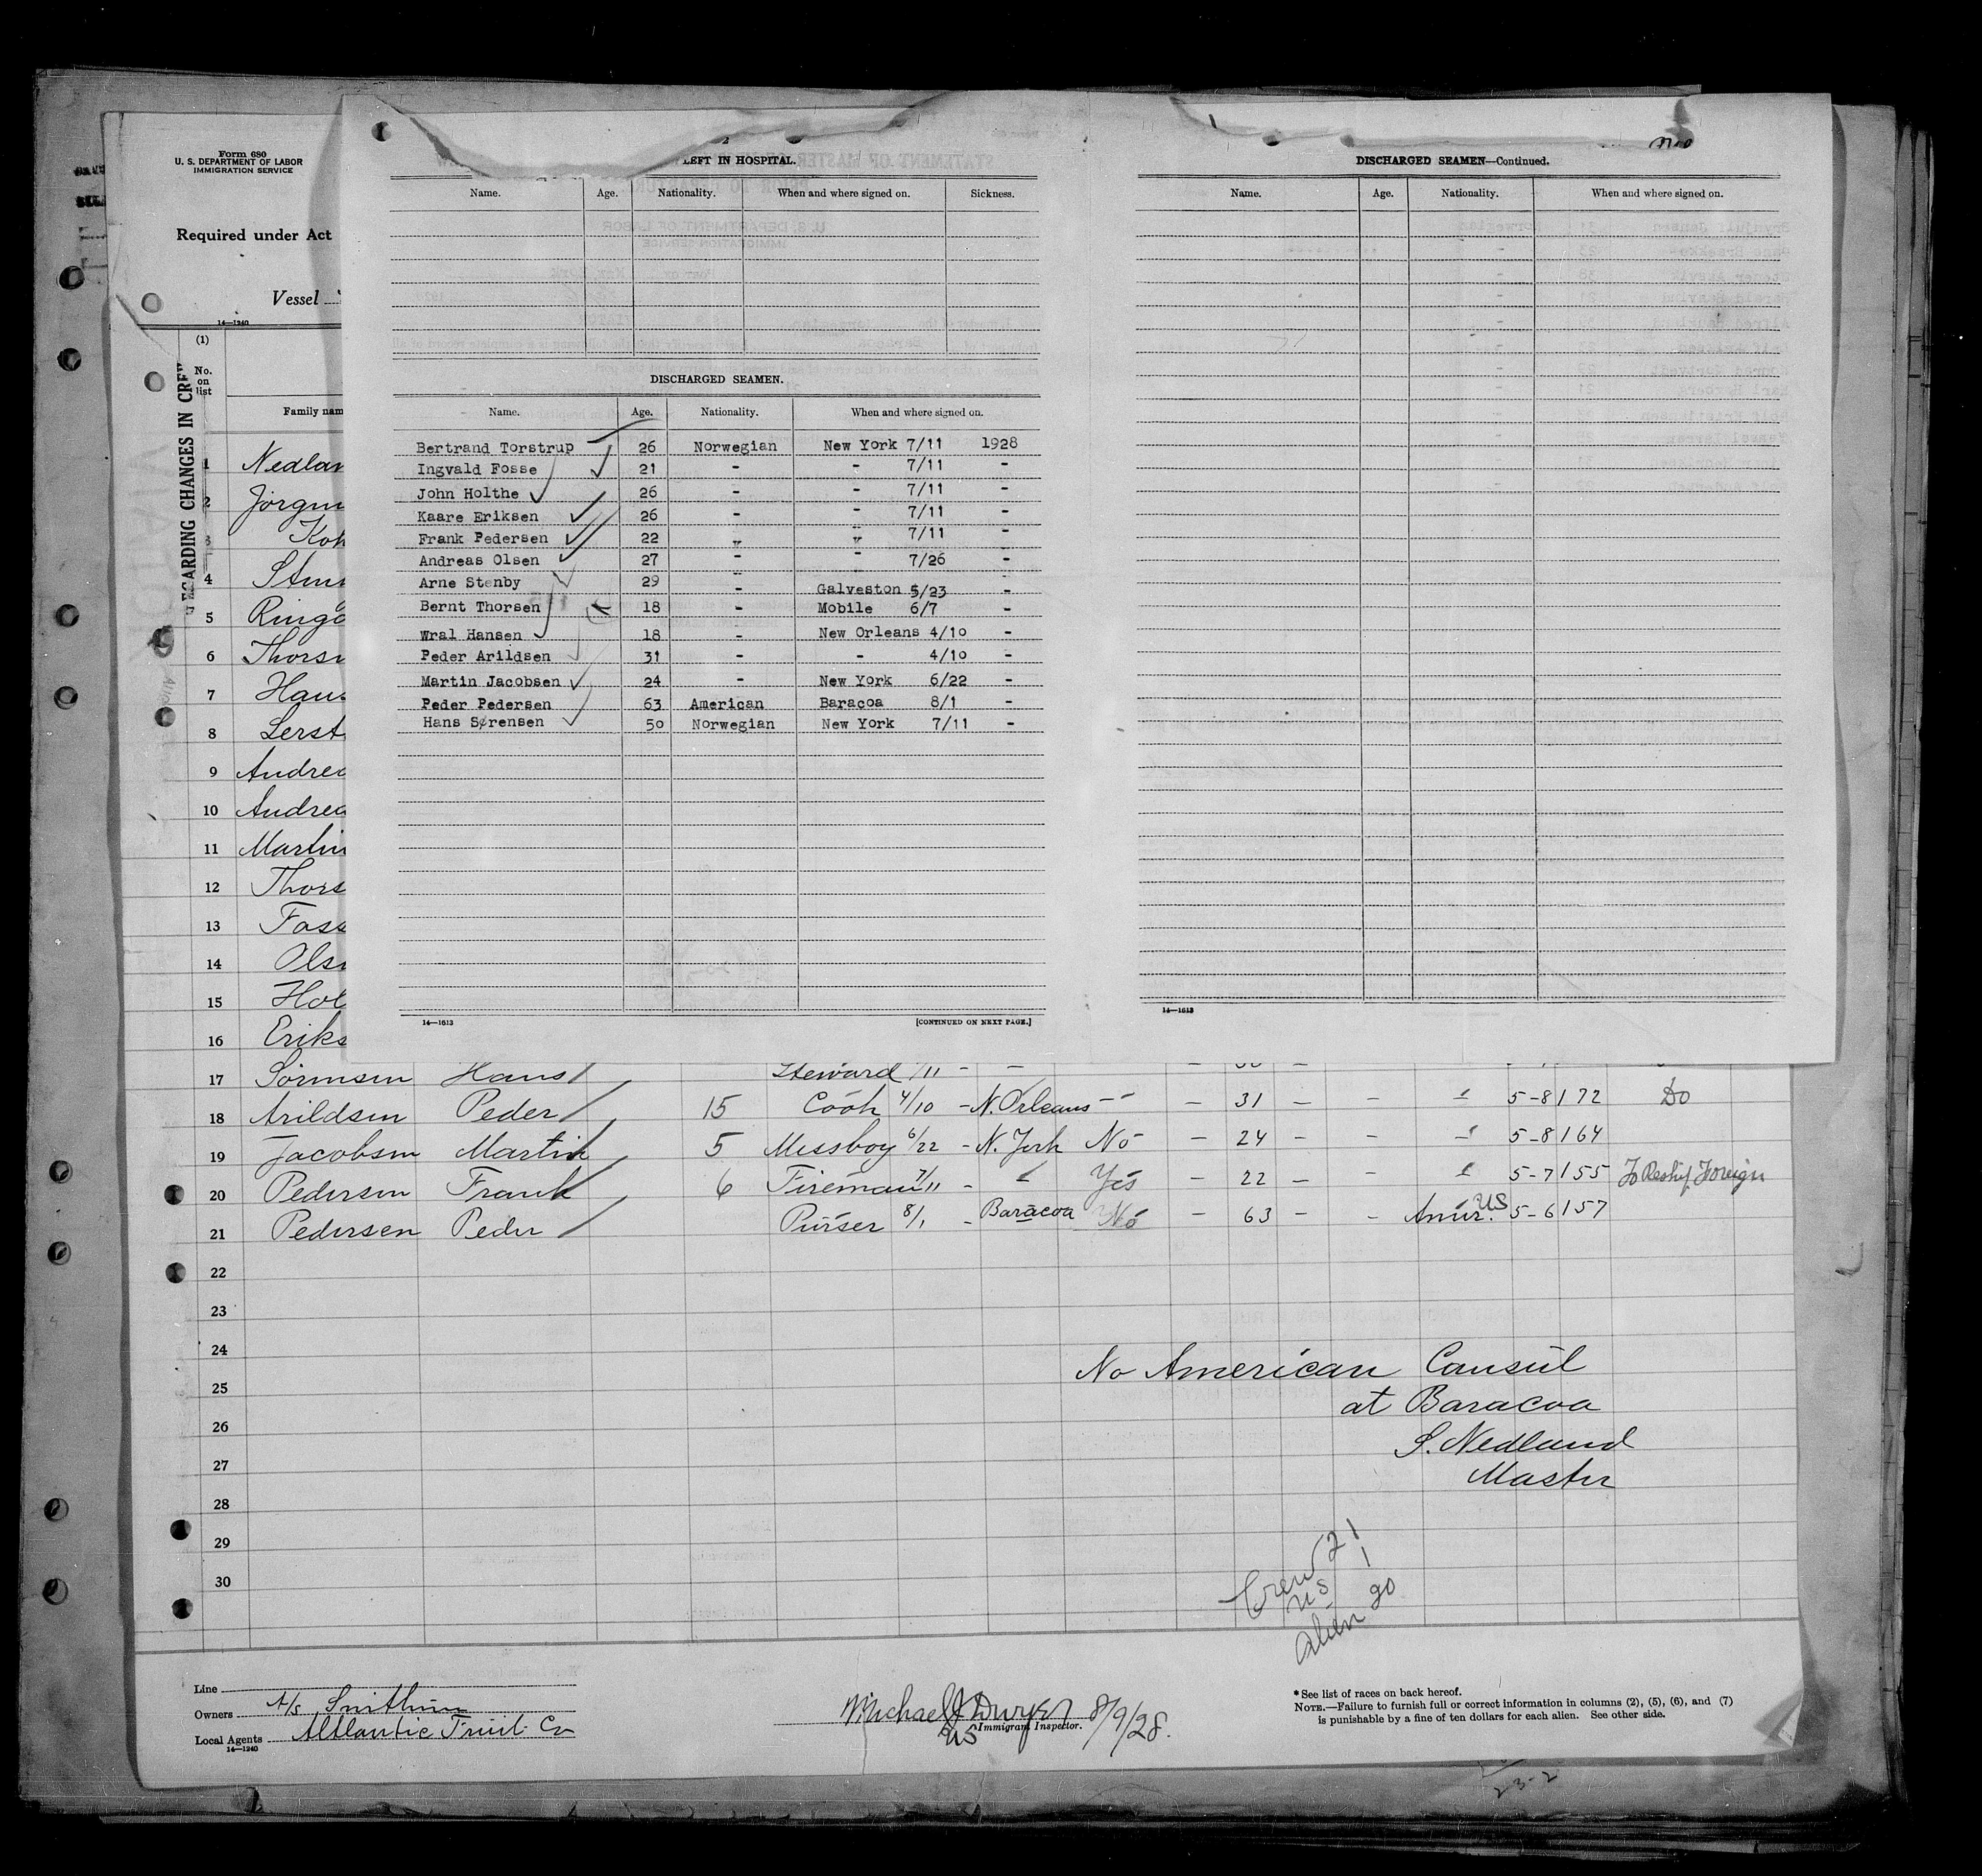 Form 680
U. S. DEPARTMENT OF LABOR
IMMIGRATION SERVICE
Required under Act
Vessel
14—1240
EGARDING CHANGES IN CRE
(1)
No. on list
Family nam
1 Nedlan
2 Jorgen
3 Koh
4 Sten
5 Ringd
6 Thorse
7 Hans
8 Lerst
9 Andrea
10 Andrea
11 Martin
12 Thors
13 Foss
14 Olse
15 Hol
16 Eriks
LEFT IN HOSPITAL.
Name. Age. Nationality. When and where signed on. Sickness.
DISCHARGED SEAMEN.
Name. Age. Nationality. When and where signed on.
Bertrand Torstrup 26 Norwegian New York 7/11 1928
Ingvald Fosse 21 - - 7/11 -
John Holthe 26 - - 7/11 -
Kaare Eriksen 26 - - 7/11 -
Frank Pedersen 22 " " 7/11 -
Andreas Olsen 27 - - 7/26 -
Arne Stenby 29 - Galveston 5/23 -
Bernt Thorsen 18 - Mobile 6/7 -
Wral Hansen 18 - New Orleans 4/10 -
Peder Arildsen 31 - - 4/10 -
Martin Jacobsen 24 - New York 6/22 -
Peder Pedersen 63 American Baracoa 8/1 -
Hans Sørensen 50 Norwegian New York 7/11 -
14—1613 [CONTINUED ON NEXT PAGE.]
DISCHARGED SEAMEN—Continued.
Name. Age. Nationality. When and where signed on.
14—1613
17 Sörensen Hans Steward 7/11 - -
18 Arildsen Peder 15 Cook 4/10 - N. Orleans - - - 31 - - " 5-8 172 Do
19 Jacobsen Martin 5 Messboy 6/22 - N. York No - 24 - - " 5-8 164
20 Pedersen Frank 6 Fireman 7/11 - " Yes - 22 - - " 5-7 155 To Reship Foreign
21 Pedersen Peder Purser 8/1 - Baracoa No - 63 - - Amer. US 5-6 157
22
23
24
25
26
27
28
29
30
No American Consul
at Baracoa
S. Nedland
Master
Crew 21
US 1
Alien 20
Line
Owners A/s
Local Agents Atlantic Fruit Co
14—1240
Michael J Dwyer 8/9/28.
US Immigrant Inspector.
* See list of races on back hereof.
NOTE.—Failure to furnish full or correct information in columns (2), (5), (6), and (7)
is punishable by a fine of ten dollars for each alien. See other side.
23-2